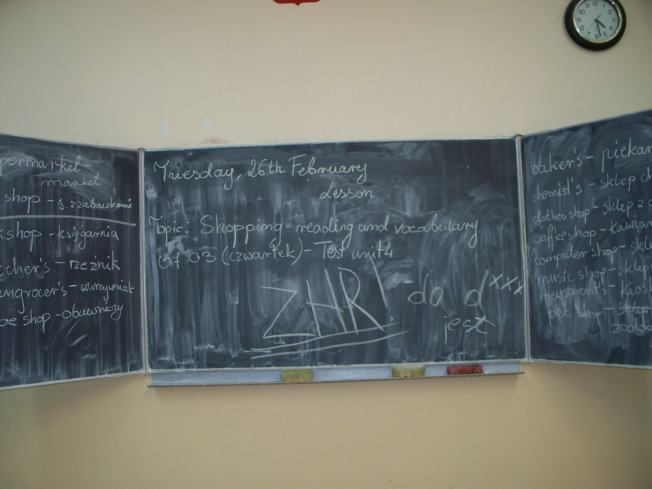 permarket
market
shop - s. z zabawkami
kshop - księgarnia
cher's - rzeźnik
engrocer's - warzywniak
oe shop - obuwniczy
Tuesday, 26th February
Lesson
Topic: Shopping - reading and vocabulary
04 03 (czwartek) - Test unit 4
ZHR! - do dxxx
jest
baker's - piekar
chemist's - sklep ch
clothes shop - sklep z o
coffee shop - kawiar
computer shop - sklep
music shop - sklep
newsagent's - kiosk
pet shop -
zoolo